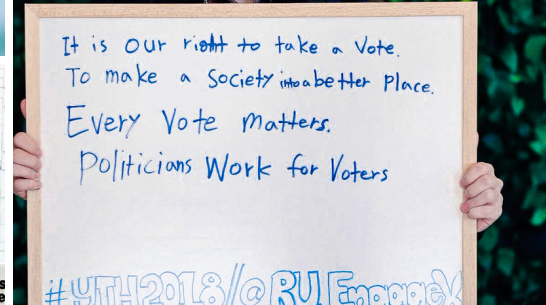 It is our right to take a Vote.
To make a Society into a better Place.
Every Vote matters.
Politicians Work for Voters
#YTH2018/@RUEngage